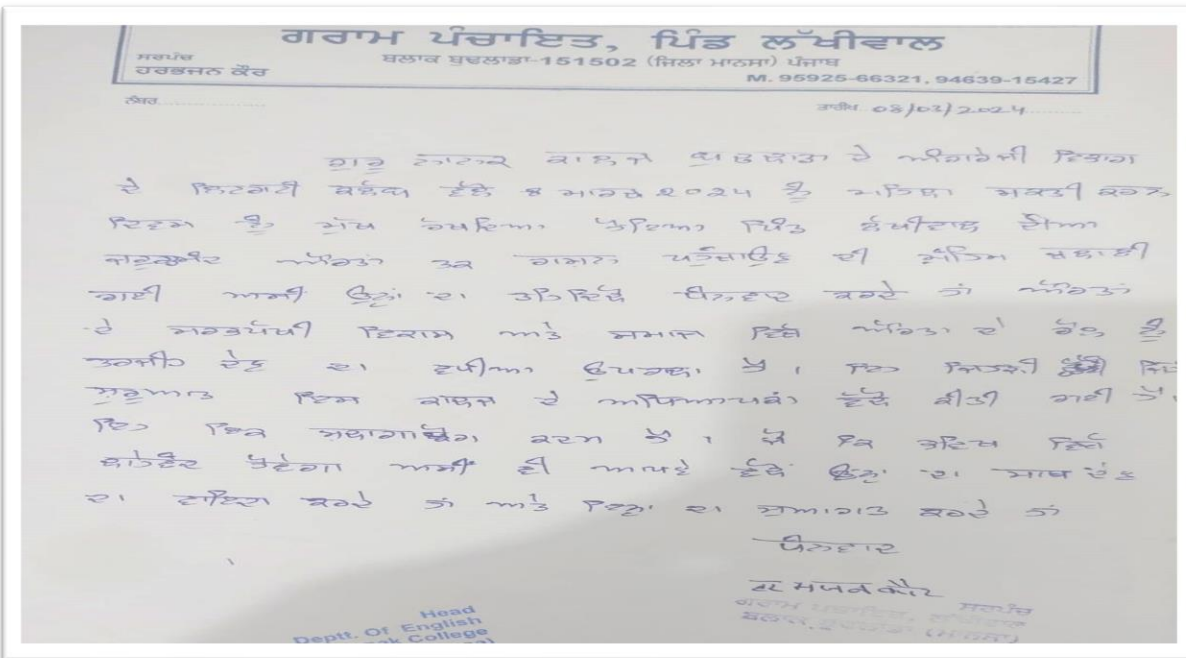 ਗਰਾਮ ਪੰਚਾਇਤ, ਪਿੰਡ ਲੱਖੀਵਾਲ
ਸਰਪੰਚ
ਹਰਭਜਨ ਕੌਰ
ਬਲਾਕ ਬੁਢਲਾਡਾ-151502 (ਜਿਲਾ ਮਾਨਸਾ) ਪੰਜਾਬ
M. 95925-66321, 94639-15427
ਨੰਬਰ
ਤਾਰੀਖ 08/03/2024
ਗੁਰੂ ਨਾਨਕ ਕਾਲਜ ਬੁਢਲਾਡਾ ਦੇ ਅੰਗਰੇਜੀ ਵਿਭਾਗ
ਦੇ ਲਿਟਰੇਰੀ ਕਲੱਬ ਵੱਲੋਂ 8 ਮਾਰਚ 2024 ਨੂੰ ਮਹਿਲਾ ਸਕਤੀਕਰਨ
ਦਿਵਸ ਨੂੰ ਮੁੱਖ ਰੱਖਦਿਆ ਹੋਇਆ ਪਿੰਡ ਲੱਖੀਵਾਲ ਦੀਆ
ਜਰੂਰਤਮੰਦ ਔਰਤਾਂ ਤਕ ਰਾਸ਼ਨ ਪਹੁੰਚਾਉਣ ਦੀ ਮੁੱਹਿਮ ਚਲਾਈ
ਗਈ ਅਸੀ ਉਨ੍ਹਾਂ ਦਾ ਤਹਿ ਦਿਲੋਂ ਧੰਨਵਾਦ ਕਰਦੇ ਹਾਂ ਔਰਤਾਂ
ਦੇ ਸਰਵਪੱਖੀ ਵਿਕਾਸ ਅਤੇ ਸਮਾਜ ਵਿਚ ਔਰਤਾ ਦੇ ਰੋਲ ਨੂੰ
ਤਰਜੀਹ ਦੇਣ ਦਾ ਵਧੀਆ ਉਪਰਾਲਾ ਹੈ। ਇਹ ਜਿਹੜੀ
ਸ਼ੁਰੂਆਤ ਇਸ ਕਾਲਜ ਦੇ ਅਧਿਆਪਕਾਂ ਵੱਲੋਂ ਕੀਤੀ ਗਈ ਹੈ।
ਇਹ ਇਕ ਸਲਾਘਾਯੋਗ ਕਦਮ ਹੈ। ਜੋ ਕਿ ਭਵਿਖ ਵਿਚ
ਲਾਹੇਵੰਦ ਹੋਵੇਗਾ ਅਸੀਂ ਵੀ ਆਪਣੇ ਵੱਲੋਂ ਉਨ੍ਹਾ ਦਾ ਸਾਥ ਦੇਣ
ਦਾ ਵਾਇਦਾ ਕਰਦੇ ਹਾਂ ਅਤੇ ਇਨ੍ਹਾ ਦਾ ਸੁਆਗਤ ਕਰਦੇ ਹਾਂ
ਧੰਨਵਾਦ
ਕੌਰ
ਸਰਪੰਚ
ਗਰਾਮ ਪੰਚਾਇਤ, ਲੱਖੀਵਾਲ
ਬਲਾਕ ਬੁਢਲਾਡਾ (ਮਾਨਸਾ)
Head
Deptt. Of English
College